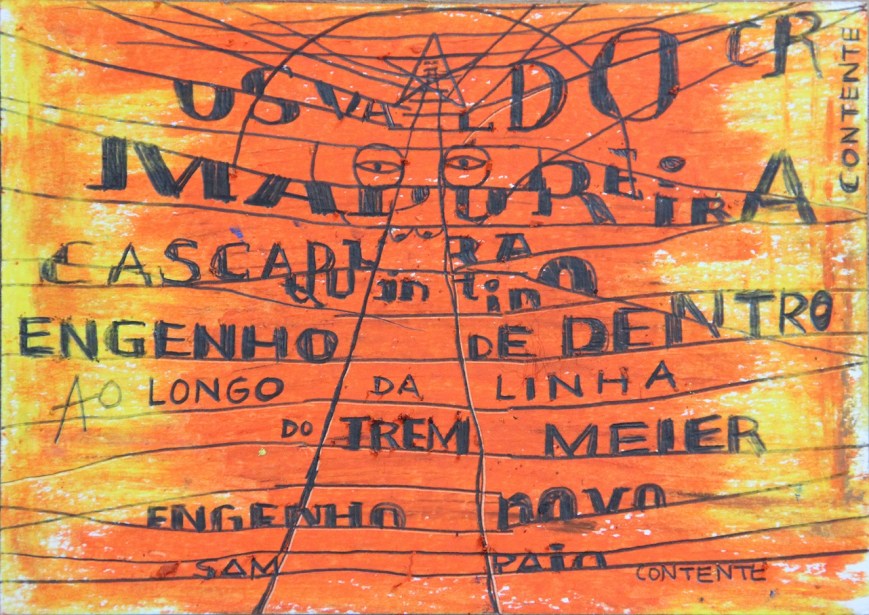 OSVALDO CR
MADUREiRA
CASCADURA
QUintinO
ENGENHO DE DENTRO
AO LONGO DA LINHA
DO TREM MEIER
ENGENHO novo
SAM PAiO
CONTENTE
CONTENTE